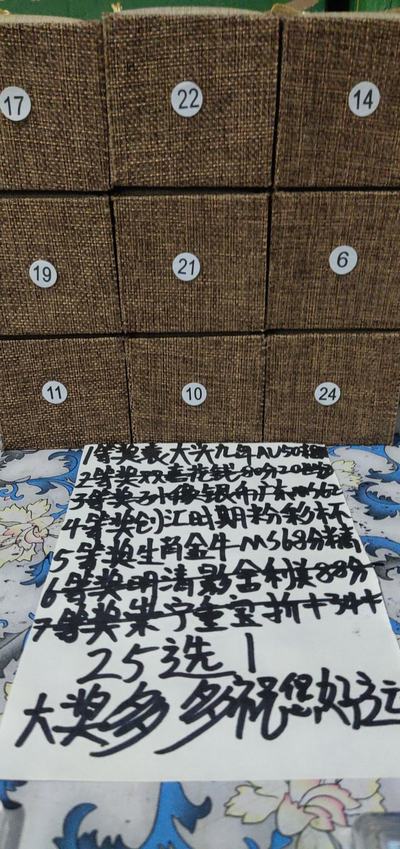 17 22 14
19 21 6
11 10 24
1等奖袁大头九年AU50
2等奖双喜花钱
3等奖孙像银币
4等奖创汇时期粉彩杯
5等奖生肖金牛MS68分
6等奖明清 88分
7等奖崇宁重宝折十
25选1
大奖多多祝您好运